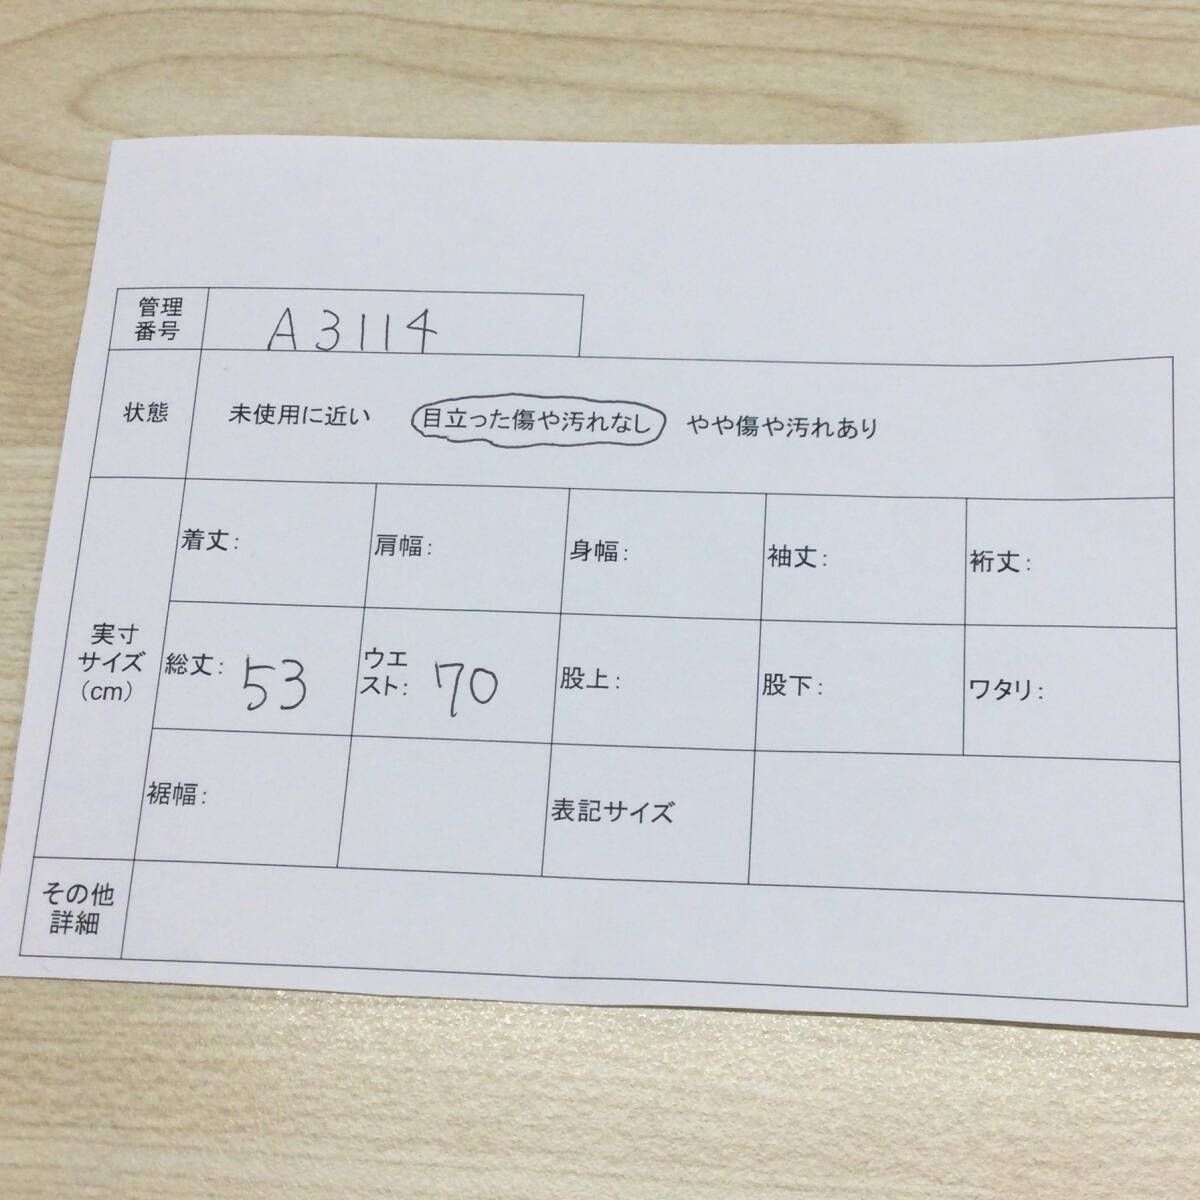 管理
番号
A3114
状態
未使用に近い 目立った傷や汚れなし やや傷や汚れあり
実寸
サイズ
（cm）
着丈： 肩幅： 身幅： 袖丈： 裄丈：
総丈： 53 ウエ
スト： 70 股上： 股下： ワタリ：
裾幅： 表記サイズ
その他
詳細